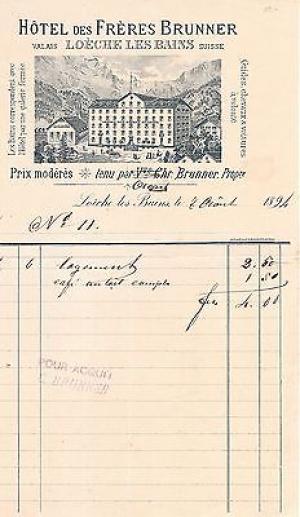 HÔTEL DES FRÈRES BRUNNER
VALAIS LOÈCHE LES BAINS SUISSE
Les Bains correspondent avec
l'Hôtel par une galerie fermée
Guides, chevaux & voitures
à volonté
Prix modérés tenu par Vve Chr. Brunner. Propre
Loèche les Bains le 2 Août 1894
No 11.
6 logement 2.50
café au lait complet 1.50
frs 4.00
POUR ACQUIT
C. BRUNNER